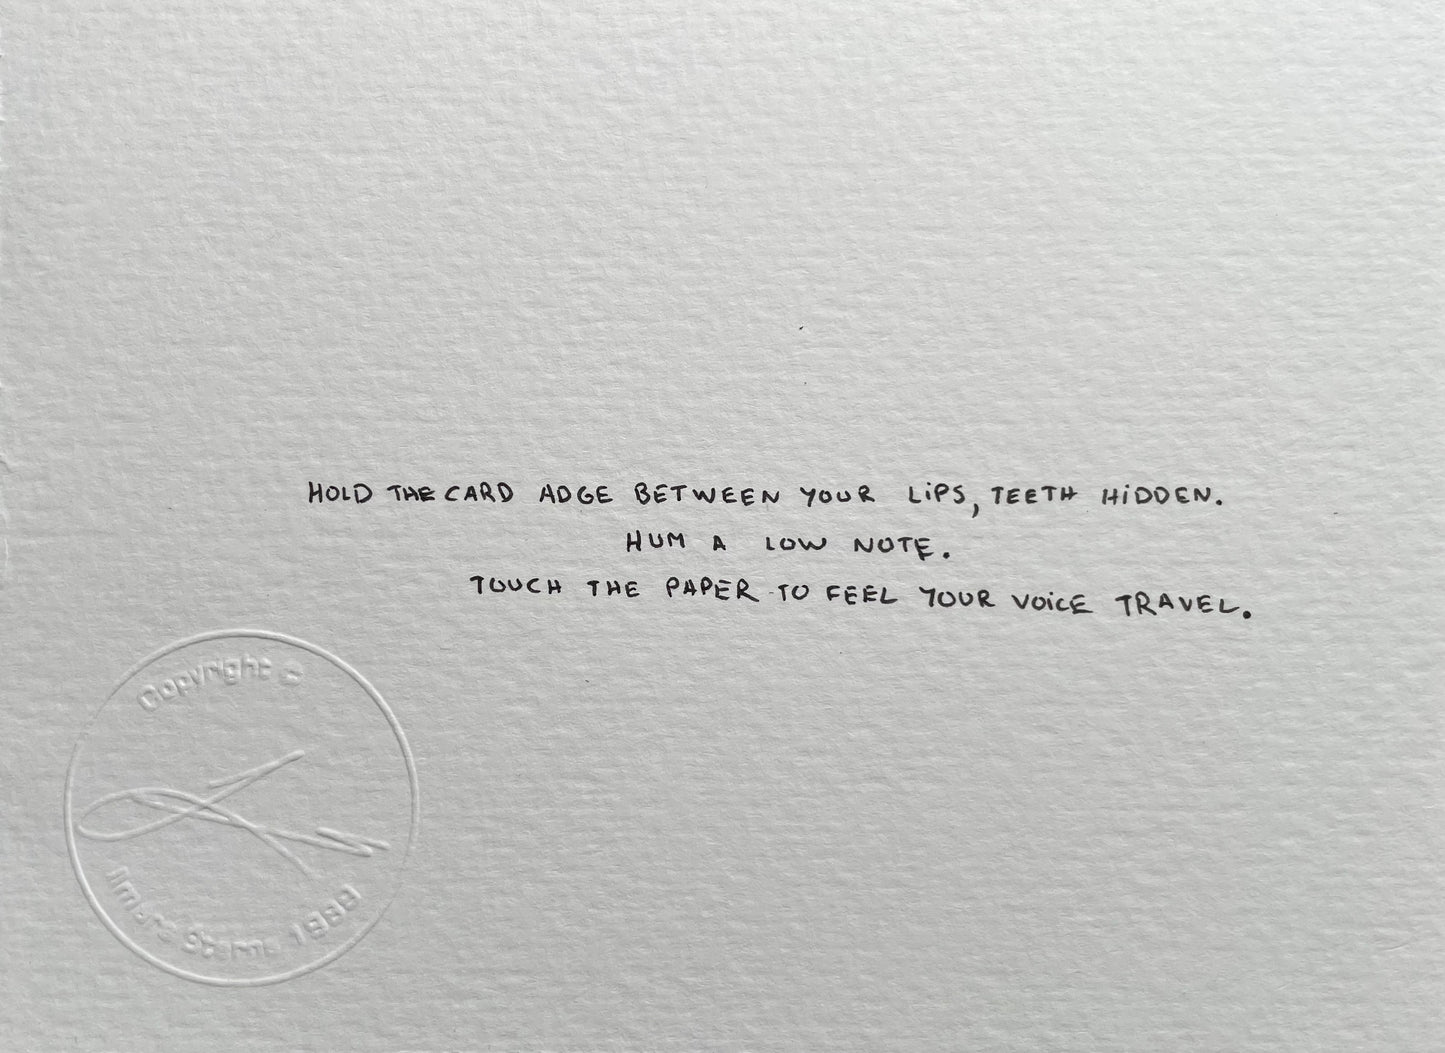 HOLD THE CARD ADGE BETWEEN YOUR LiPS, TEETH HiDDEN.
HUM A LOW NOTE.
TOUCH THE PAPER TO FEEL YOUR VOiCE TRAVEL.
Copyright ©
1988